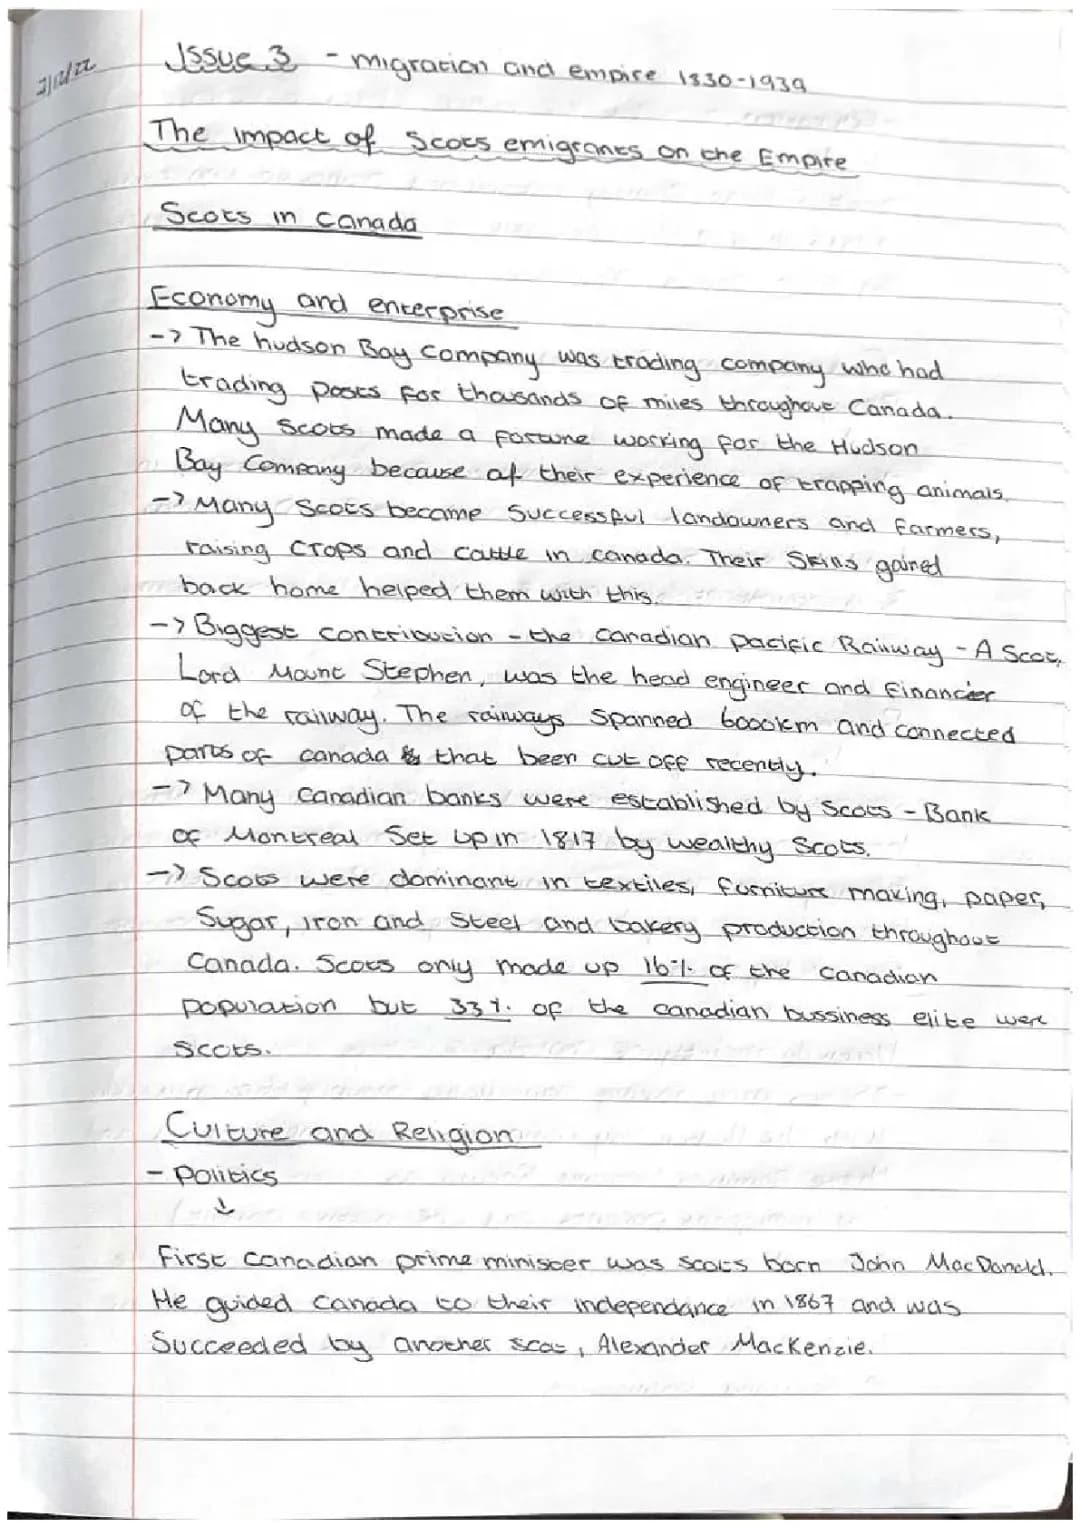 2/12/22
Issue 3 - migration and empire 1830-1939
The impact of Scots emigrants on the Empire
Scots in Canada
Economy and enterprise
-> The hudson Bay Company was trading company who had
trading posts for thousands of miles throughout Canada.
Many Scots made a fortune working for the Hudson
Bay Company because of their experience of trapping animals.
-> Many Scots became successful landowners and farmers,
raising crops and cattle in canada. Their skills gained
back home helped them with this.
-> Biggest contribution - the Canadian pacific Railway - A Scot,
Lord Mount Stephen, was the head engineer and financier
of the railway. The railways spanned 6000km and connected
parts of canada that been cut off recently.
-> Many Canadian banks were established by Scots - Bank
of Montreal set up in 1817 by wealthy Scots.
-> Scots were dominant in textiles, furniture making, paper,
Sugar, iron and steel and bakery production throughout
Canada. Scots only made up 16% of the Canadian
population but 33%. of the canadian bussiness elite were
Scots.
Culture and Religion
- Politics
↓
First Canadian prime minister was Scots born John MacDonald.
He guided Canada to their independance in 1867 and was
Succeeded by another scot, Alexander MacKenzie.